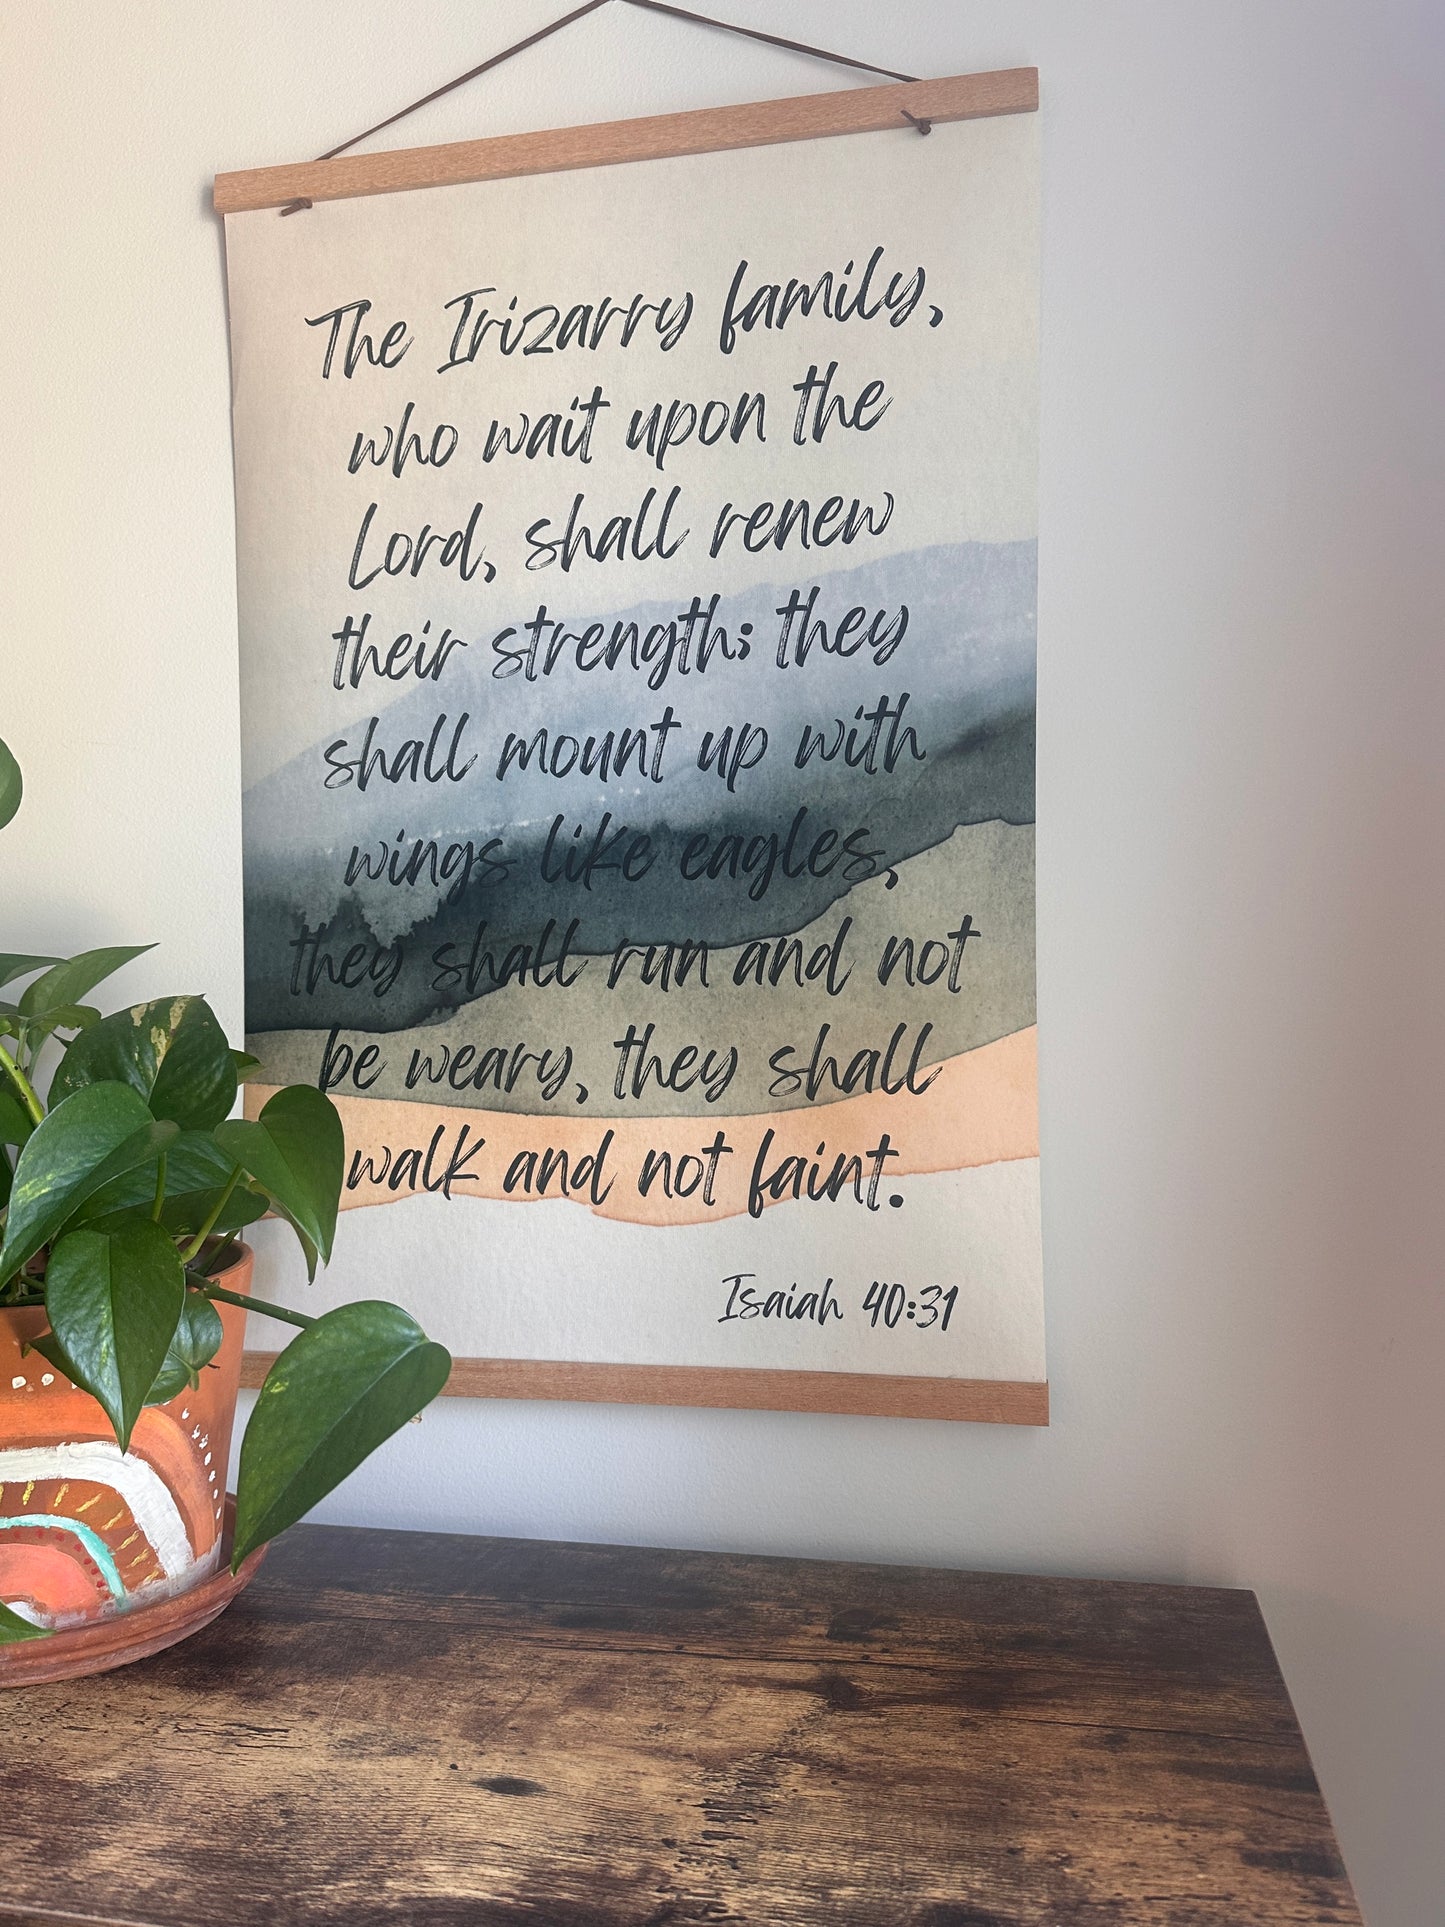 The Irizarry family,
who wait upon the
Lord, shall renew
their strength; they
shall mount up with
wings like eagles,
they shall run and not
be weary, they shall
walk and not faint.
Isaiah 40:31